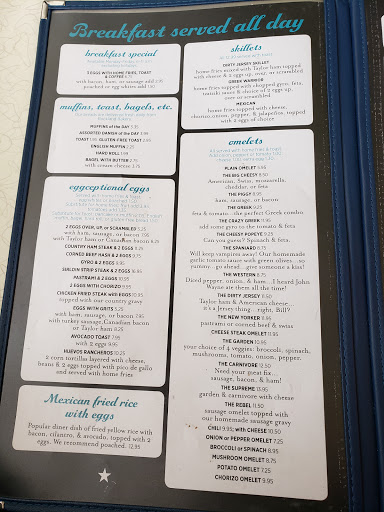 Breakfast served all day
breakfast special
3 EGGS WITH HOME FRIES, TOAST
& COFFEE 6.75
with bacon, ham, or sausage add
or poached egg whites add
muffins, toast, bagels, etc.
MUFFINS of the DAY
ASSORTED DANISH of the DAY
TOAST GLUTEN-FREE TOAST
ENGLISH MUFFIN 2.25
HARD ROLL
BAGEL WITH BUTTER
with cream cheese 3.75
eggceptional eggs
2 EGGS OVER, UP, or SCRAMBLED
with ham, sausage, or bacon
with Taylor ham or Canadian bacon
COUNTRY HAM STEAK & 2 EGGS
CORNED BEEF HASH & 2 EGGS
GYRO & 2 EGGS
SIRLOIN STRIP STEAK & 2 EGGS
PASTRAMI & 2 EGGS
2 EGGS WITH CHORIZO
CHICKEN FRIED STEAK WITH EGGS
topped with our country gravy
EGGS WITH GRITS
with ham, sausage, or bacon
with turkey sausage, Canadian bacon
or Taylor ham
AVOCADO TOAST 7.95
with 2 eggs 9.95
HUEVOS RANCHEROS 10.25
2 corn tortillas layered with cheese,
beans & 2 eggs topped with pico de gallo
and served with home fries
Mexican fried rice
with eggs
Popular diner dish of fried yellow rice with
bacon, cilantro, & avocado, topped with 2
eggs. We recommend poached. 12.95
skillets
DIRTY JERSEY SKILLET
home fries mixed with Taylor ham topped
with cheese & 2 eggs up, over, or scrambled
GREEK WARRIOR
home fries topped with chopped gyro, feta,
over or scrambled
MEXICAN
home fries topped with cheese,
chorizo, onion, pepper, & jalapeño, topped
with 2 eggs of choice
omelets
PLAIN OMELET
THE BIG CHEESY 8.50
American, Swiss, mozzarella,
cheddar, or feta
THE PIGGY 8.95
ham, sausage, or bacon
THE GREEK 9.25
feta & tomato - the perfect Greek combo
THE CRAZY GREEK 11.95
add some gyro to the tomato & feta
THE CHEESY POPEYE 9.25
Can you guess? Spinach & feta.
THE SPANIARD 8.75
Will keep vampires away! Our homemade
garlic tomato sauce with green olives...so
yummy...go ahead...give someone a kiss!
THE WESTERN 8.75
Diced pepper, onion, & ham...I heard John
Wayne ate them all the time!
THE DIRTY JERSEY 11.50
Taylor ham & American cheese...
it's a Jersey thing...right, Bill?
THE NEW YORKER 11.95
pastrami or corned beef & swiss
CHEESE STEAK OMELET 11.95
THE GARDEN 10.95
your choice of 4 veggies: broccoli, spinach,
mushrooms, tomato, onion, pepper
THE CARNIVORE 12.50
Need your meat fix...
sausage, bacon, & ham!
THE SUPREME 13.95
garden & carnivore with cheese
THE REBEL 11.50
sausage omelet topped with
our homemade sausage gravy
CHILI 9.95; with CHEESE 10.50
ONION or PEPPER OMELET 7.25
BROCCOLI or SPINACH 8.95
MUSHROOM OMELET 8.75
POTATO OMELET 7.25
CHORIZO OMELET 9.95